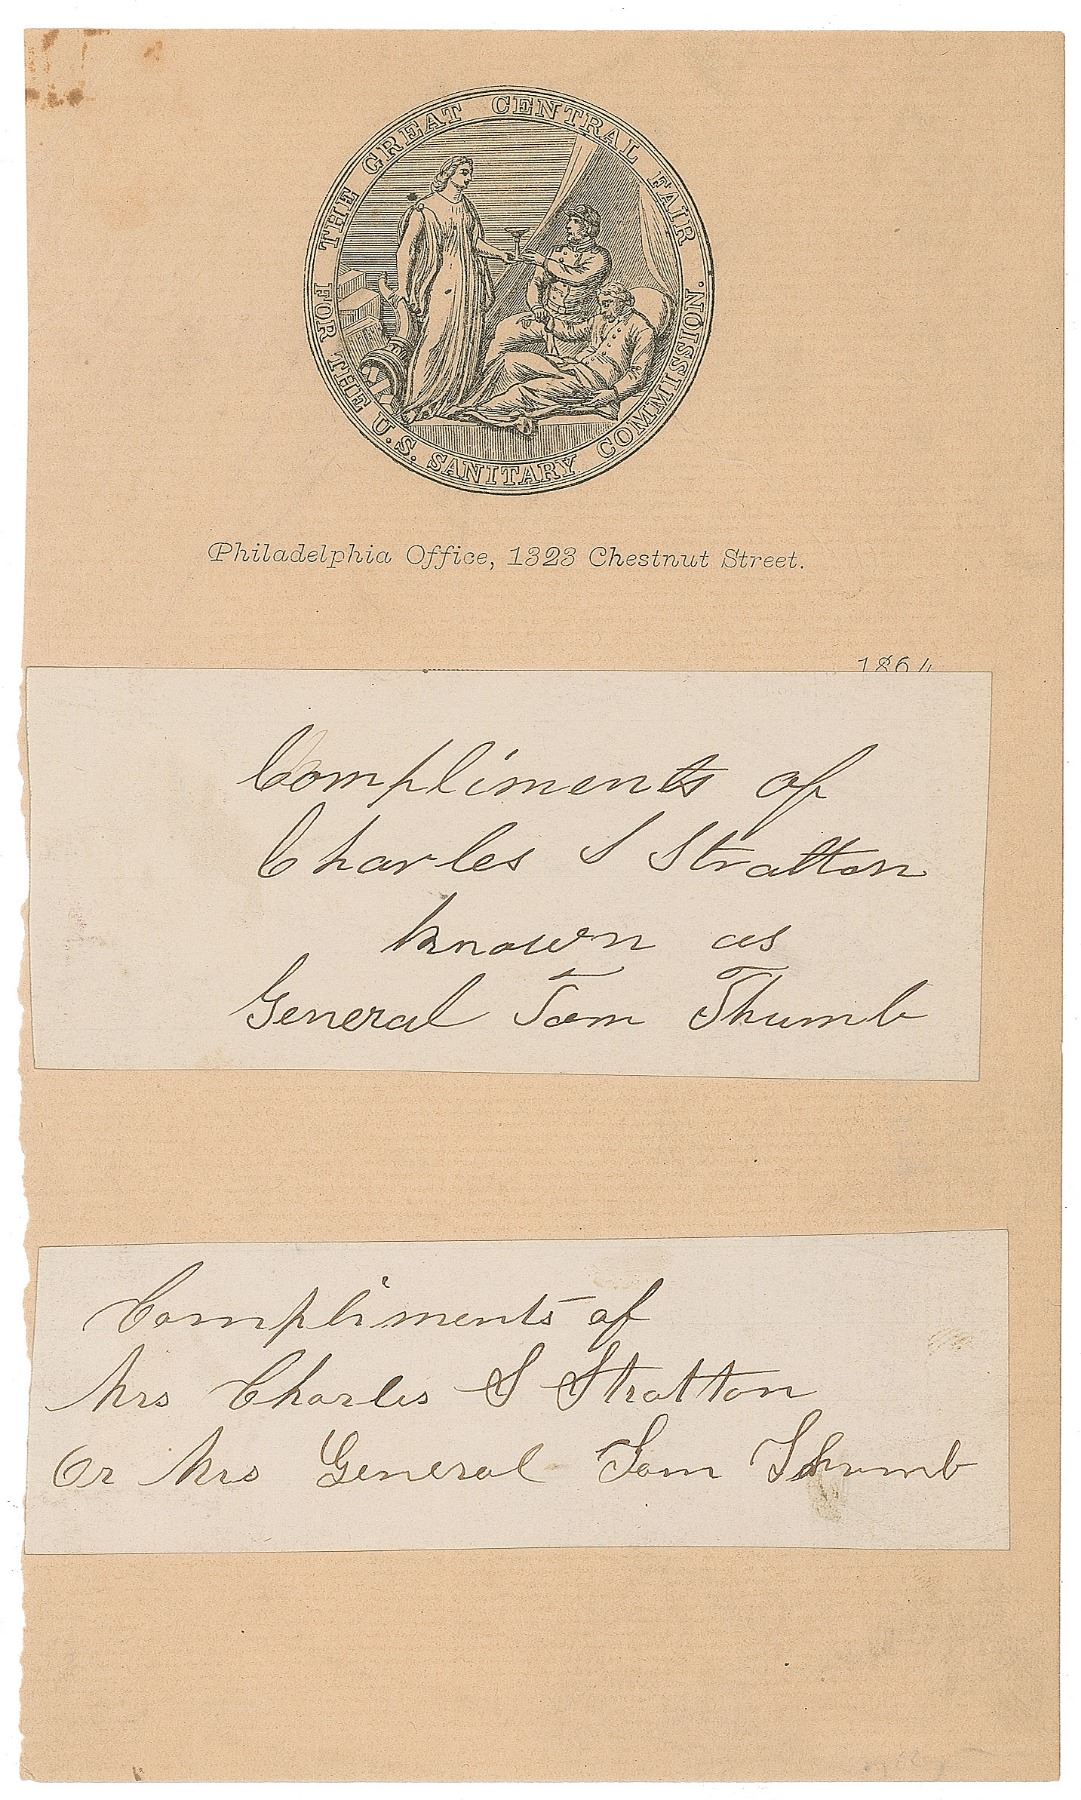 THE GREAT CENTRAL FAIR
FOR THE U.S. SANITARY COMMISSION.
Philadelphia Office, 1323 Chestnut Street.
1864
Compliments of
Charles S Stratton
known as
General Tom Thumb
Compliments of
Mrs Charles S Stratton
Or Mrs General Tom Thumb